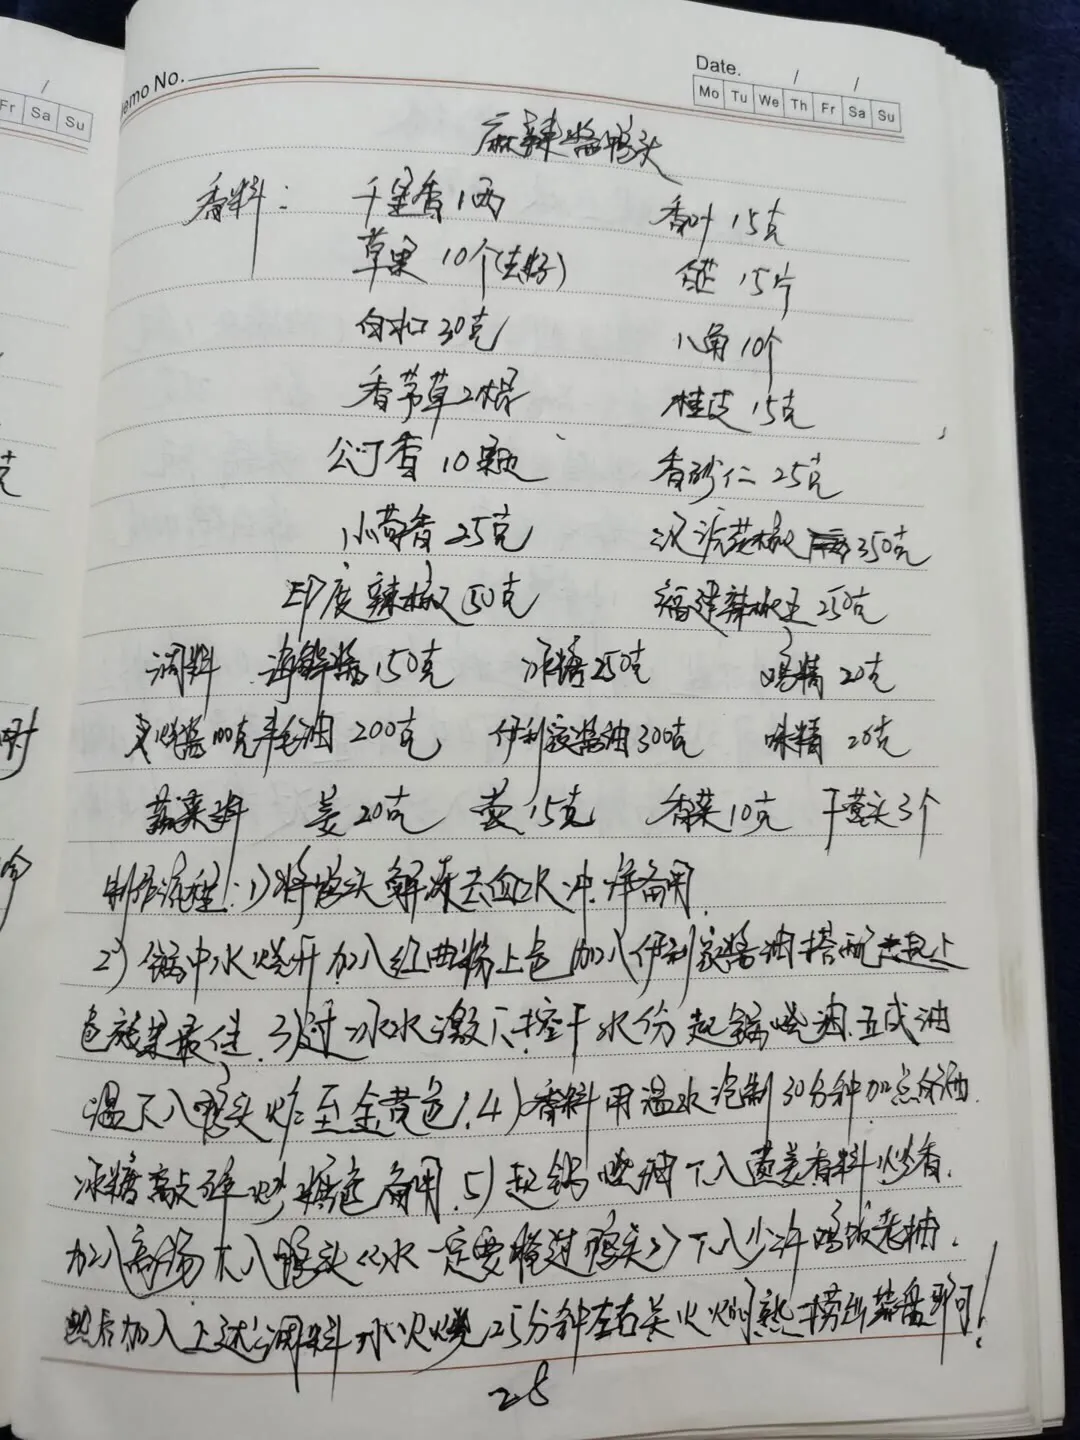 Fr Sa Su
Memo No.
Date.
Mo Tu We Th Fr Sa Su
麻辣酱鸭头
香料: 千里香1两 香叶15克
草果10个(去籽) 白芷15片
白扣30克 八角10个
香茅草2根 桂皮15克
公丁香10颗 香砂仁25克
小茴香25克 汉源花椒350克
印度辣椒150克 福建辣椒王250克
调料 海鲜酱150克 冰糖250克 鸡精20克
叉烧酱100克 200克 伊利家酱油300克 味精20克
蔬菜料 姜20克 葱15克 香菜10克 干葱头3个
制作流程:1)将鸭头解冻去血水冲洗备用.
2)锅中水烧开加入红曲粉上色加入伊利家酱油搭配一起上
色效果最佳.3)过冰水激下控干水份起锅烧油.五成油
温下入鸭头炸至金黄色!4)香料用温水泡制30分钟加点白酒.
冰糖敲碎炒糖色备用.5)起锅烧油下入葱姜香料炒香.
加入高汤下入鸭头<<水一定要掩过鸭头>>下入少许鸡饭老抽.
然后加入上述调料小火烧25分钟左右关火焖熟捞出装盘即可!
28